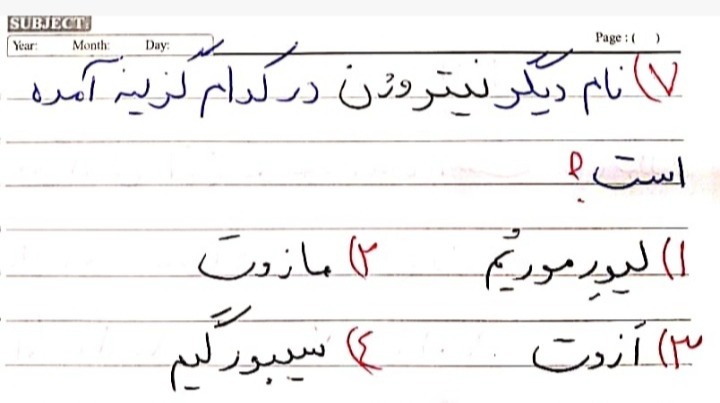 SUBJECT:
Year: Month: Day: Page : ( )
۷) نام دیگر نیتروژن در کدام گزینه آمده
است؟
۱) لیورموریُم ۲) مازوت
۳) اَزوت ٤) سیبورگیم